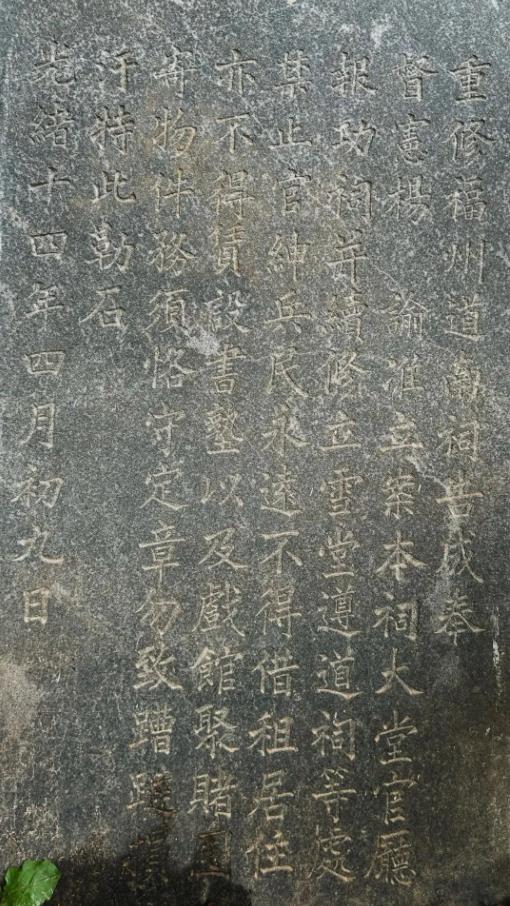 重修福州道南祠告成奉
督憲楊 諭准立案本祠大堂官廳
報功祠并續修立雪堂遵道祠等處
禁止官紳兵民永遠不得借租居住
亦不得賃設書塾以及戲館聚賭囤
寄物件務須恪守定章勿致蹧蹋損
汙特此勒石
光緒十四年四月初九日